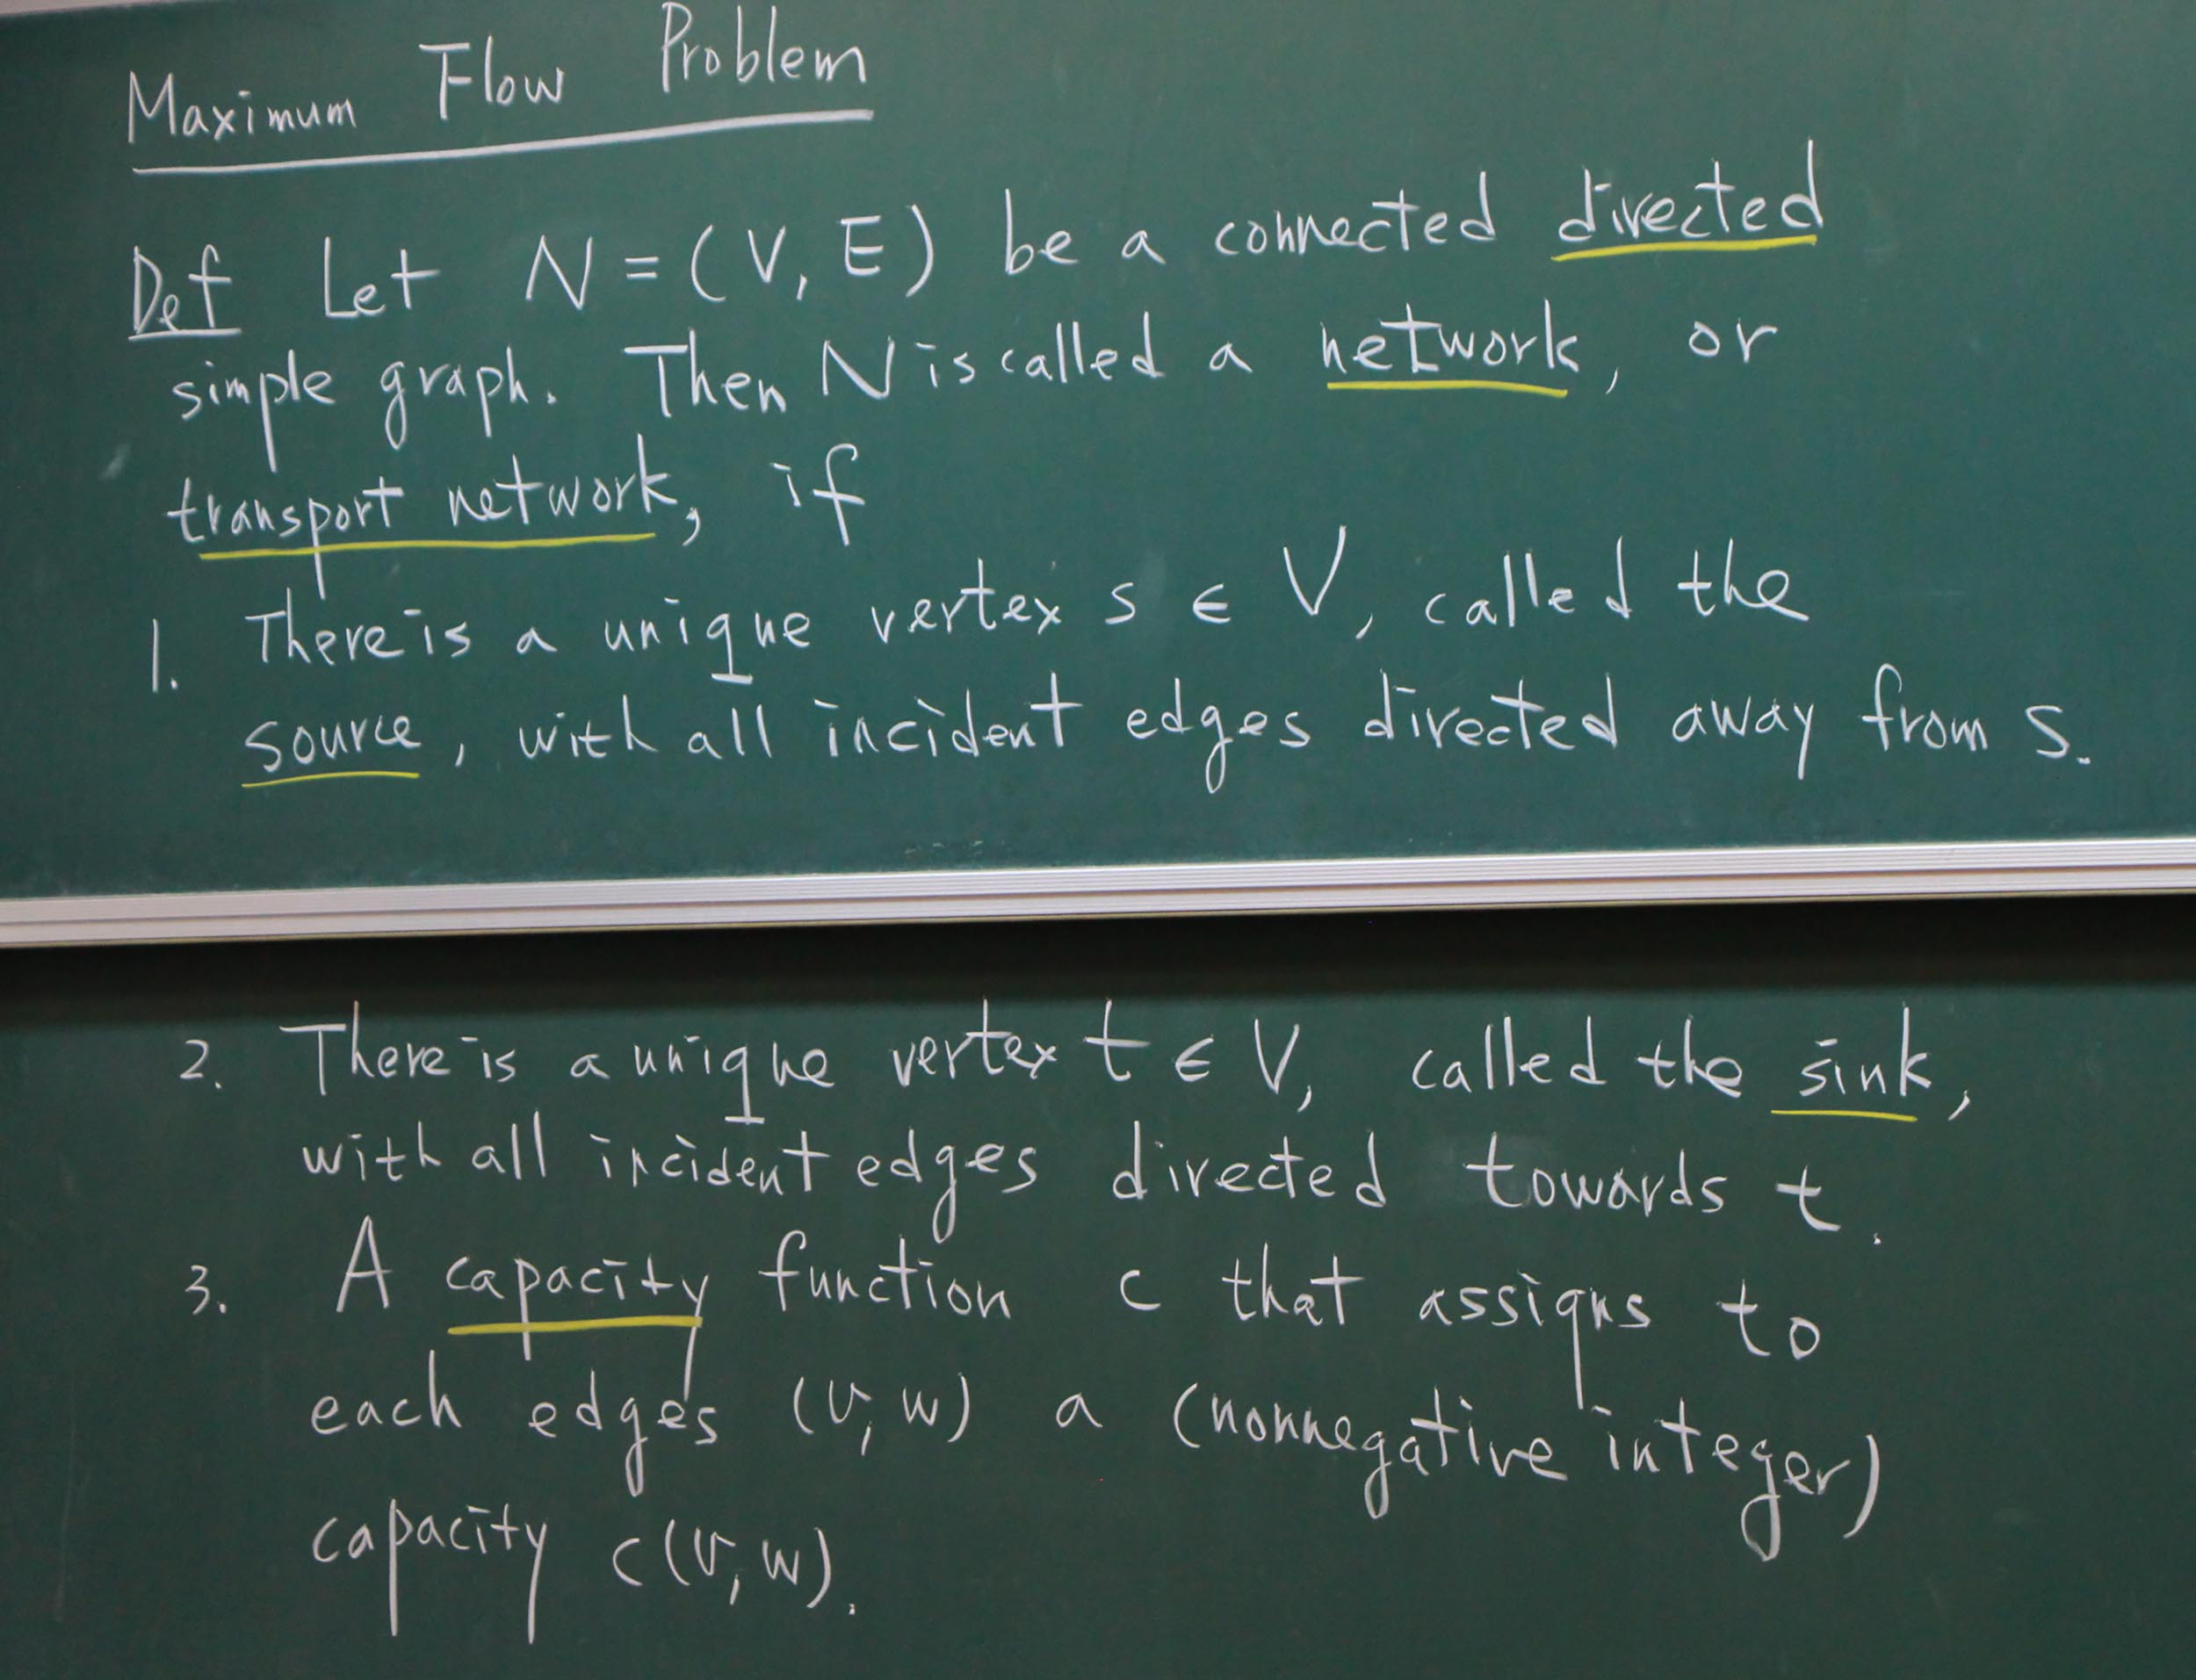 Maximum Flow Problem
Def Let N = (V, E) be a connected directed
simple graph. Then N is called a network, or
transport network, if
1. There is a unique vertex s ∈ V, called the
source, with all incident edges directed away from s.
2. There is a unique vertex t ∈ V, called the sink,
with all incident edges directed towards t.
3. A capacity function c that assigns to
each edges (v, w) a (nonnegative integer)
capacity c(v, w).